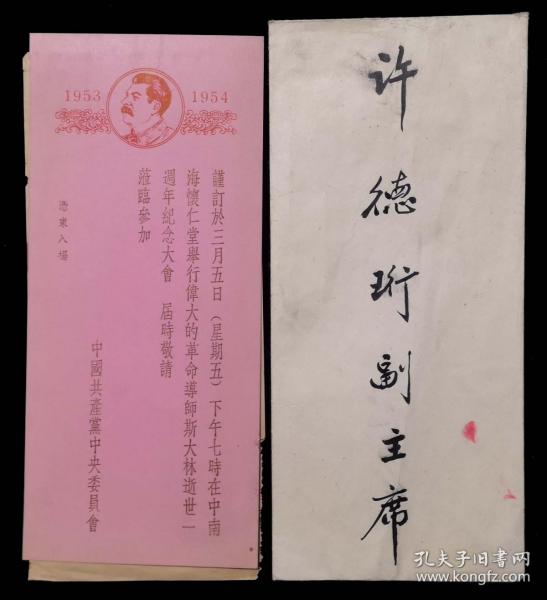 1953 1954
謹訂於三月五日（星期五）下午七時在中南
海懷仁堂舉行偉大的革命導師斯大林逝世一
週年紀念大會　屆時敬請
蒞臨參加
憑柬入場
中國共產黨中央委員會
许德珩副主席
孔夫子旧书网
www.kongfz.com